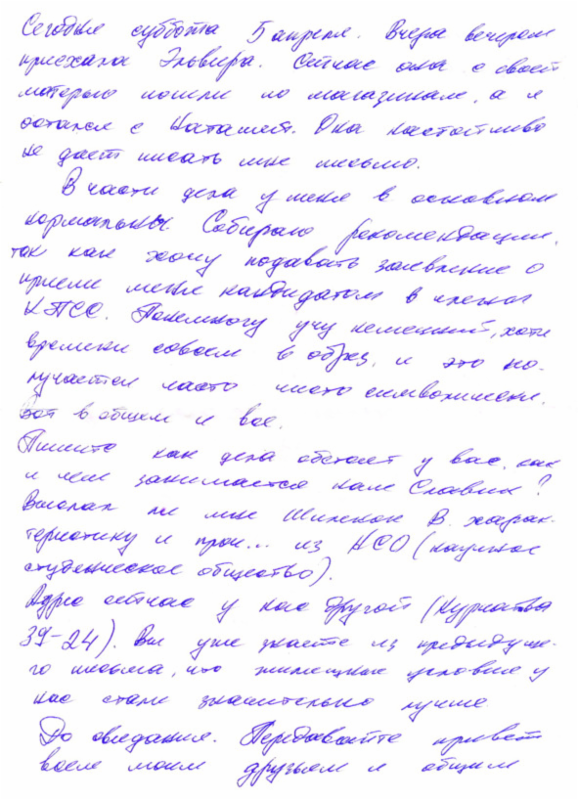 Сегодня суббота 5 апреля. Вчера вечером
приехала Эльвира. Сейчас она с своей
матерью пошли по магазинам, а я
остался с Наташей. Она настойчиво
не дает писать мне письмо.
В части дела у меня в основном
нормальны. Собираю рекомендации,
так как хочу подавать заявление о
приеме меня кандидатом в члены
КПСС. Понемногу учу немецкий, хотя
времени совсем в обрез, и это по-
лучается часто чисто символически.
Вот в общем и все.
Пишите как дела обстоят у вас, как
и чем занимается наш Славик?
Выслал ли мне Шипенок В. харак-
теристику и проч... из НСО (научное
студенческое общество).
Адрес сейчас у нас другой (Курчатова
39-24). Вы уже знаете из предыдуще-
го письма, что жилищные условия у
нас стали значительно лучше.
До свидания. Передавайте привет
всем моим друзьям и общим